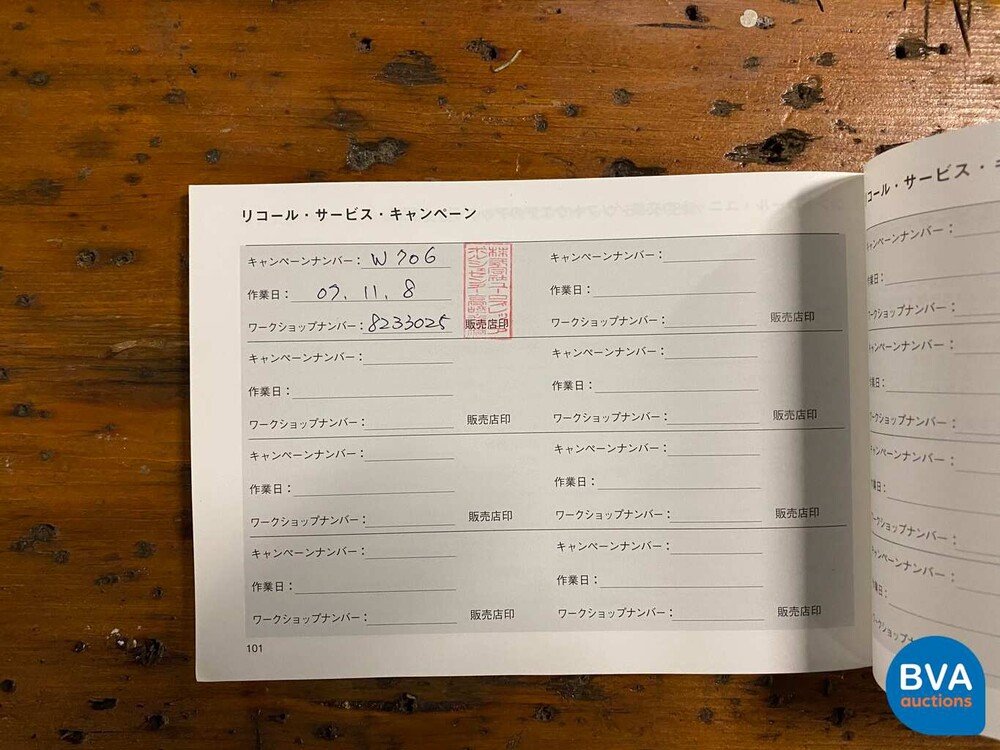 リコール・サービス・キャンペーン
キャンペーンナンバー：W706
作業日：07. 11. 8
ワークショップナンバー：8233025 販売店印
キャンペーンナンバー：
作業日：
ワークショップナンバー： 販売店印
キャンペーンナンバー：
作業日：
ワークショップナンバー： 販売店印
キャンペーンナンバー：
作業日：
ワークショップナンバー： 販売店印
キャンペーンナンバー：
作業日：
ワークショップナンバー： 販売店印
キャンペーンナンバー：
作業日：
ワークショップナンバー： 販売店印
キャンペーンナンバー：
作業日：
ワークショップナンバー： 販売店印
キャンペーンナンバー：
作業日：
ワークショップナンバー： 販売店印
101
コール・サービス・
キャンペーンナンバー：
作業日：
ワークショップナンバー：
キャンペーンナンバー：
作業日：
ワークショップナンバー：
キャンペーンナンバー：
作業日：
ワークショップナンバー：
キャンペーンナンバー：
作業日：
BVA
auctions